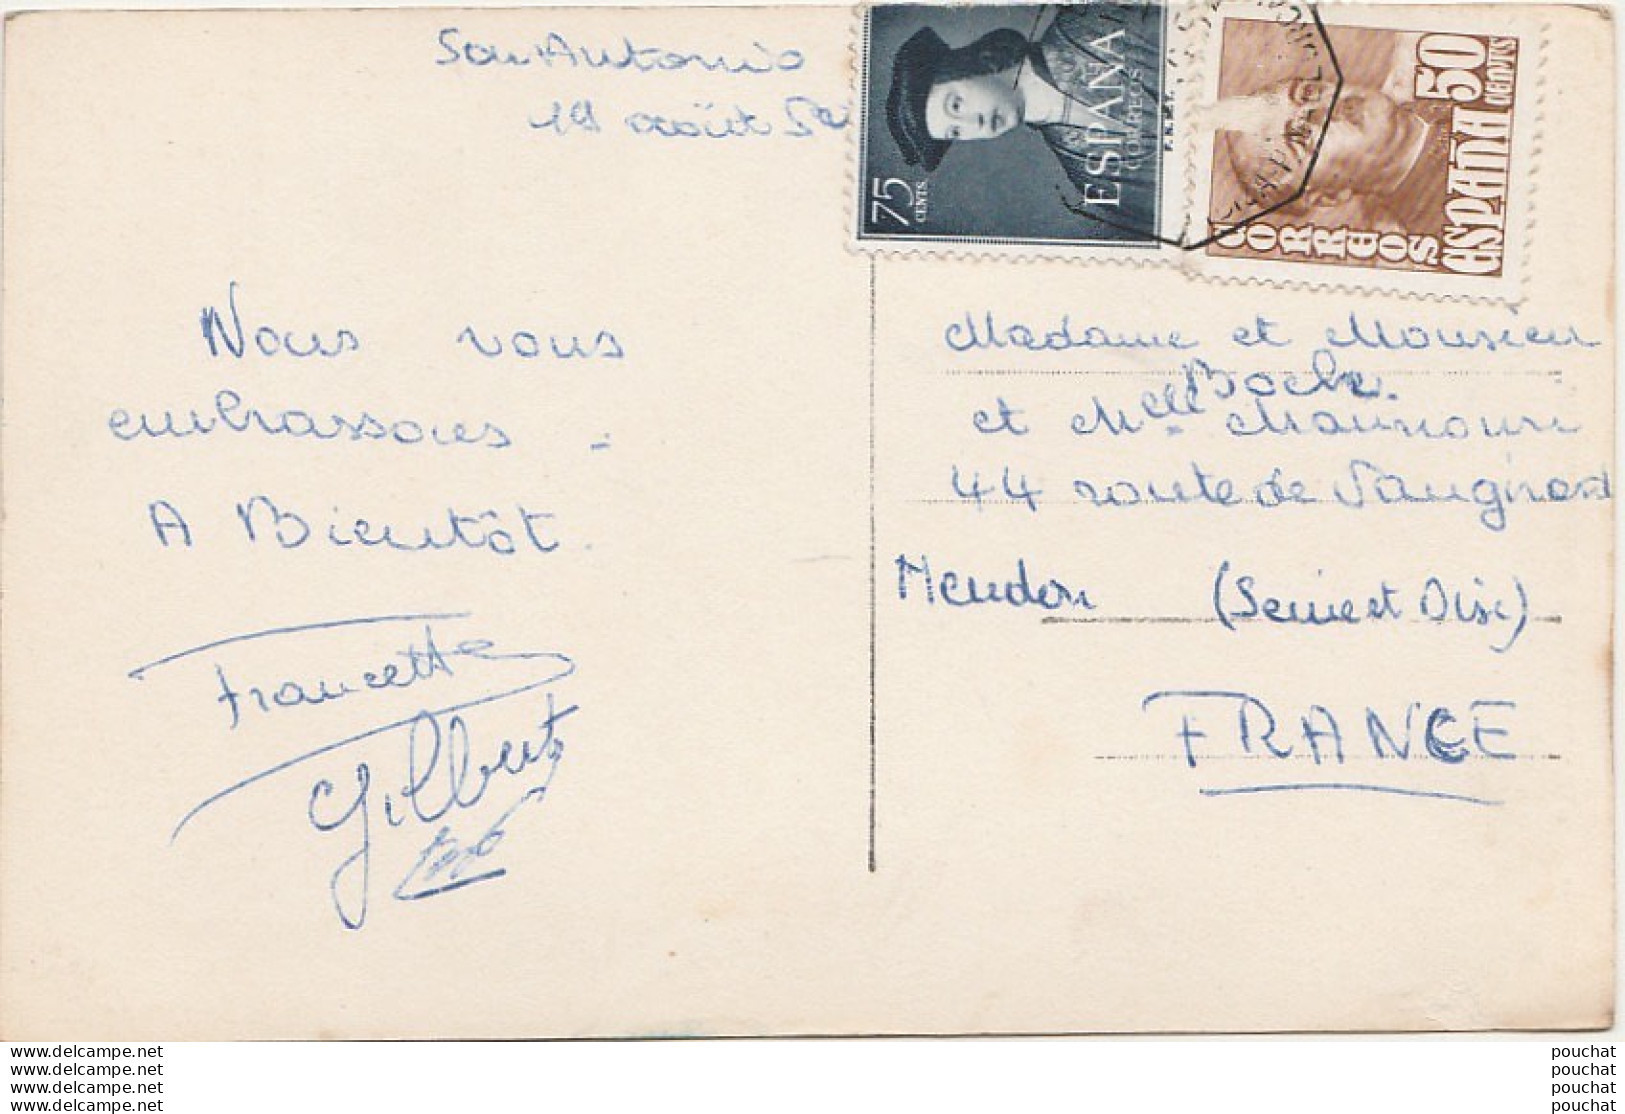 San Antonio
août
75 CENTS
ESPAÑA
CORREOS
F.N.M.T.
CORREOS
50 CENTIMOS
ESPAÑA
Nous vous
embrassons -
A Bientôt.
Francette
Gilbert
Madame et Monsieur
et Melle Maunoury
44 route de Vaugirard
Meudon (Seine et Oise)
FRANCE
www.delcampe.net
www.delcampe.net
www.delcampe.net
www.delcampe.net
pouchat
pouchat
pouchat
pouchat